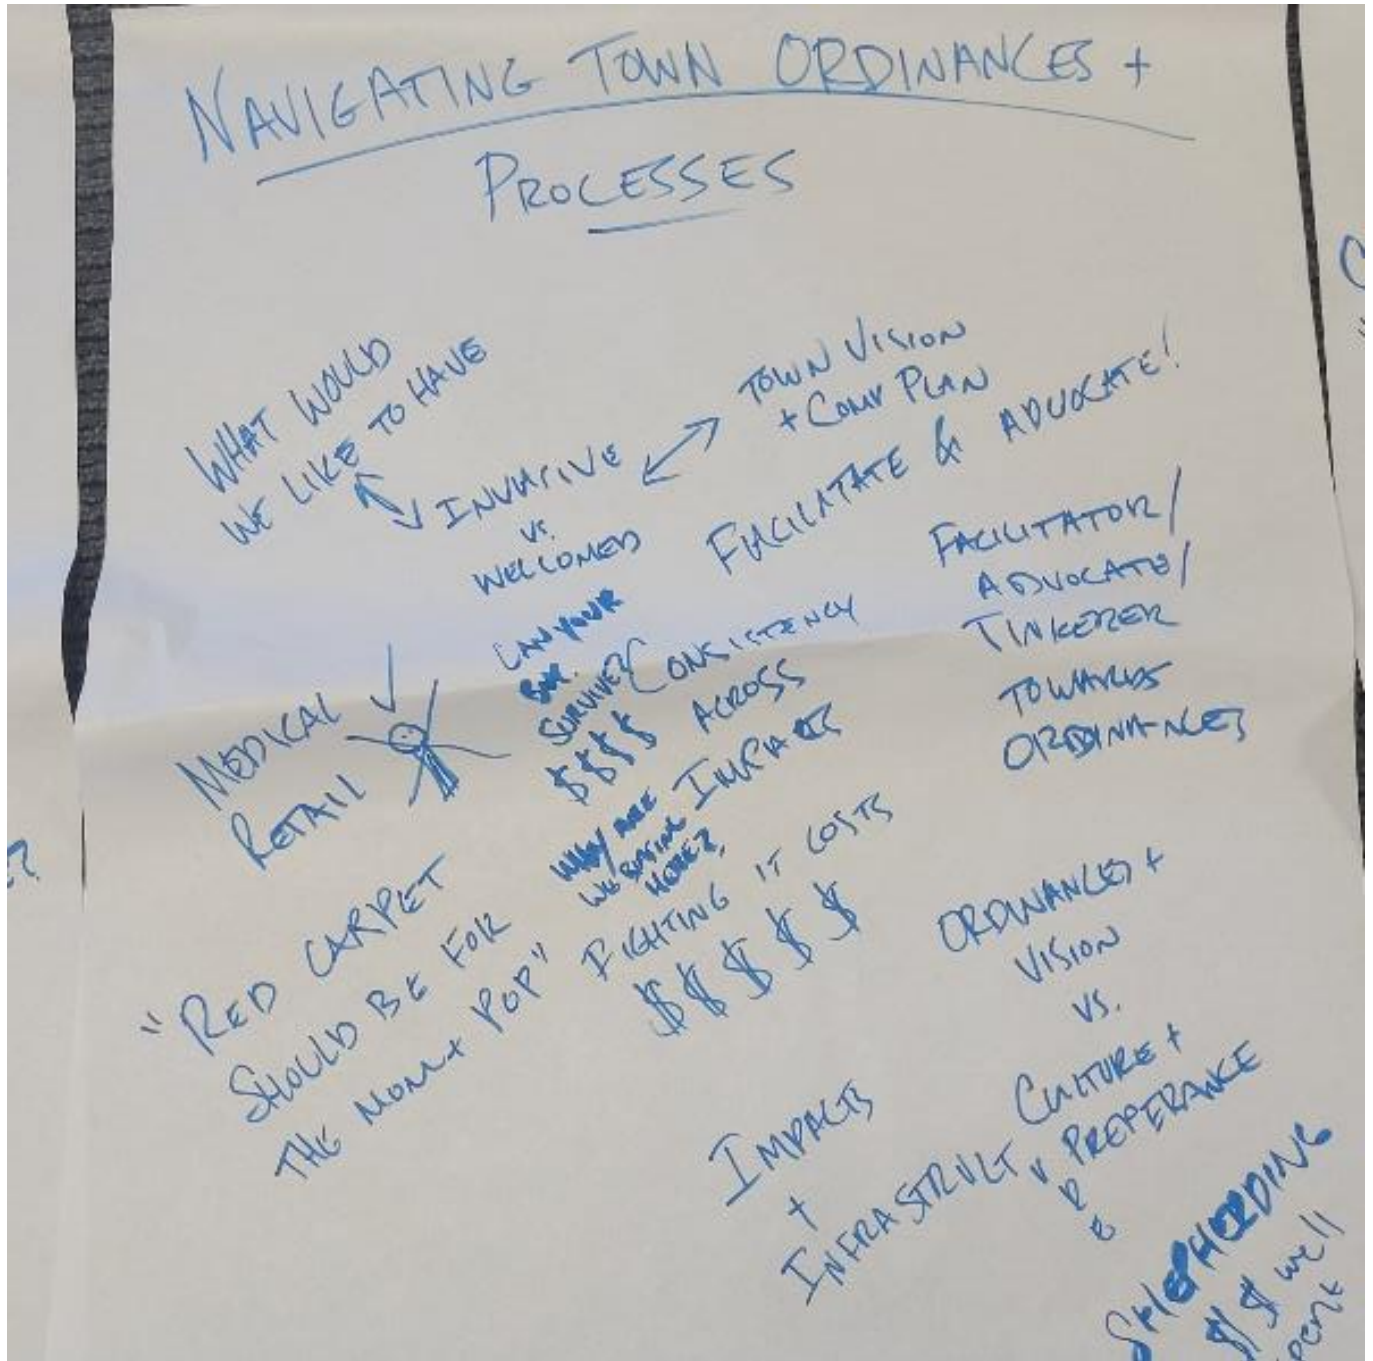 NAVIGATING TOWN ORDINANCES +
PROCESSES
WHAT WOULD
WE LIKE TO HAVE
INVASIVE
vs.
WELCOMED
TOWN VISION
+ COMP PLAN
FACILATATE & ADVOCATE!
FACILITATOR/
ADVOCATE/
TINKERER
TOWARDS
ORDINANCES
CAN YOUR
SURVIVE?
$$$$
CONSISTENCY
ACROSS
IMPACTS
MEDICAL
RETAIL
WHY ARE
WE
HERE?
"RED CARPET
SHOULD BE FOR
THE MOM + POP"
FIGHTING IT COSTS
$$$$$
ORDINANCES +
VISION
VS.
CULTURE +
PREFERANCE
IMPACTS
+
INFRASTRUCTURE
SHEPHERDING
$$ well
spent